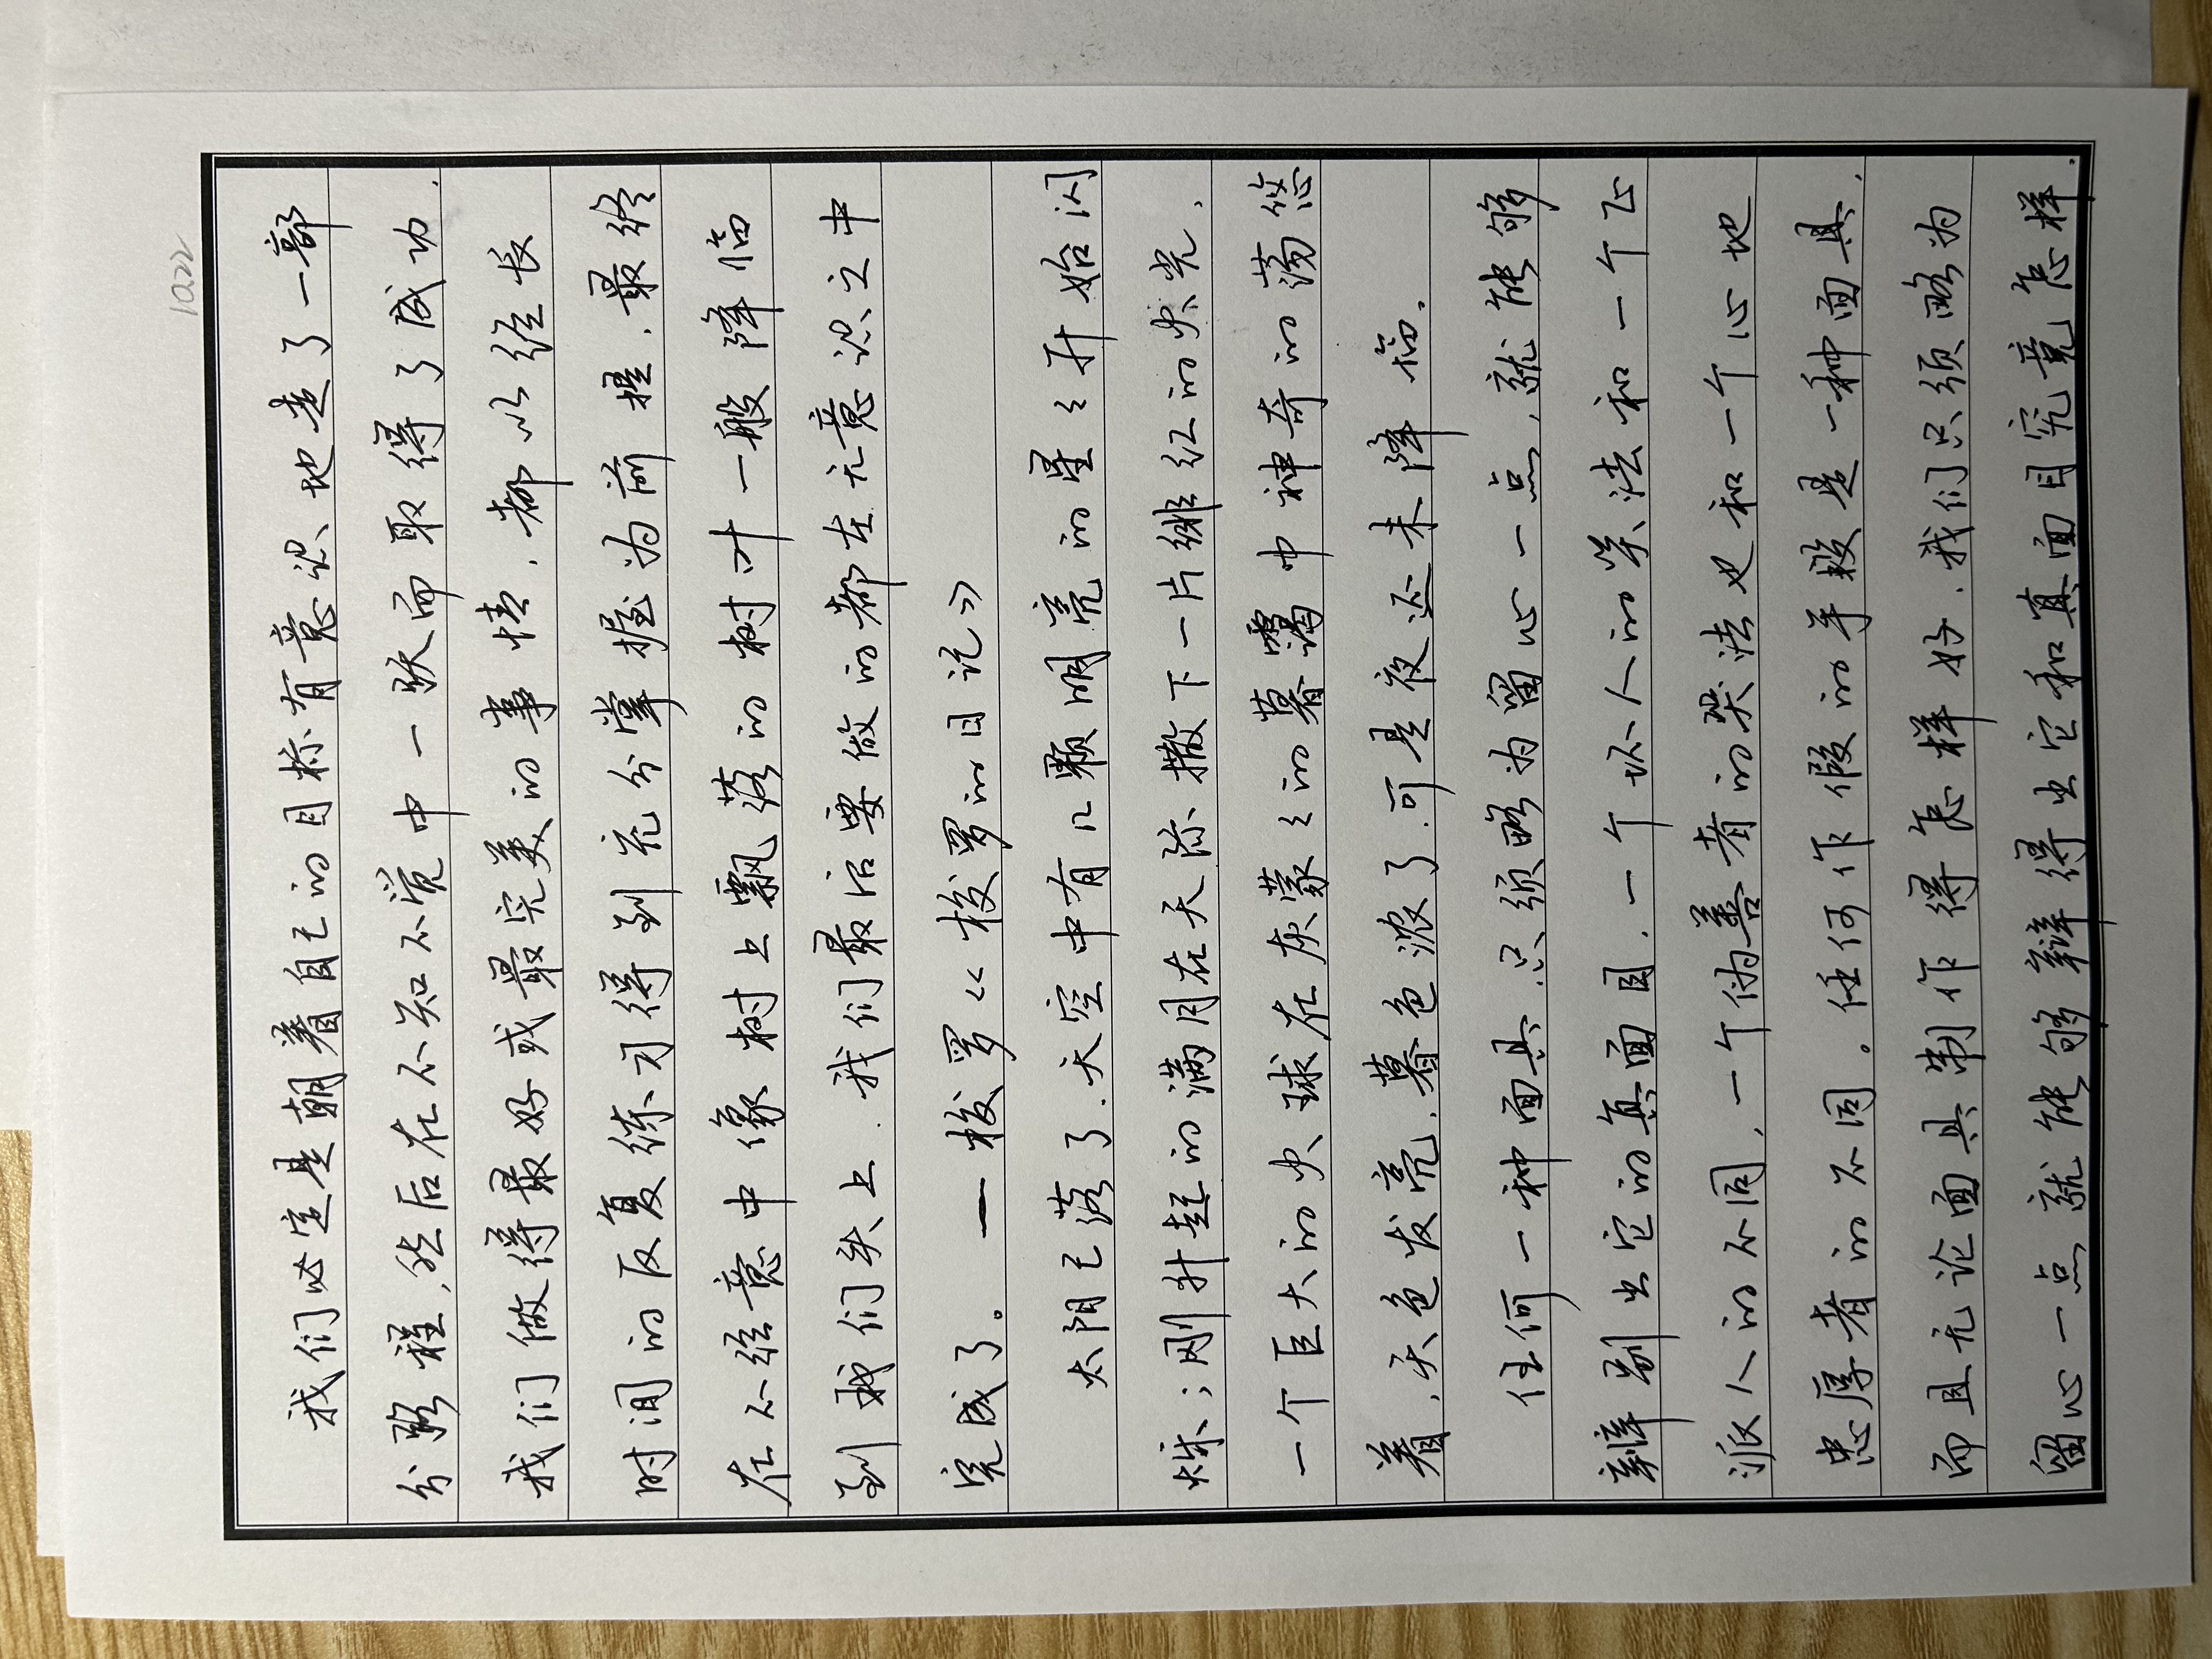 10.22
我们必定是朝着自己的目标有意识地走了一部
分路程,然后在不知不觉中一跃而取得了成功.
我们做得最好或最完美的事情,都以经长
时间的反复练习得到充分掌握为前提,最终
在不经意中像树上飘落的树叶一般降临
到我们头上.我们最后要做的都在无意识之中
完成了。 —梭罗《梭罗的日记》
太阳已落了.天空中有几颗明亮的星々开始闪
烁;刚升起的满月在天际撒下一片绯红的火光,
一个巨大的火球在灰蒙々的暮霭中神奇的荡悠
着,天色发亮,暮色浓了.可是夜还未降临.
任何一种面具.只须略为留心一点,就能够
辨别出它的真面目.一个坏人的笑法和一个正
派人的不同,一个伪善者的哭法也和一个心地
忠厚者的不同。任何作假的手段是一种面具,
而且无论面具制作得怎样好.我们只须略为
留心一点就能够辩得出它和真面目究竟怎样.